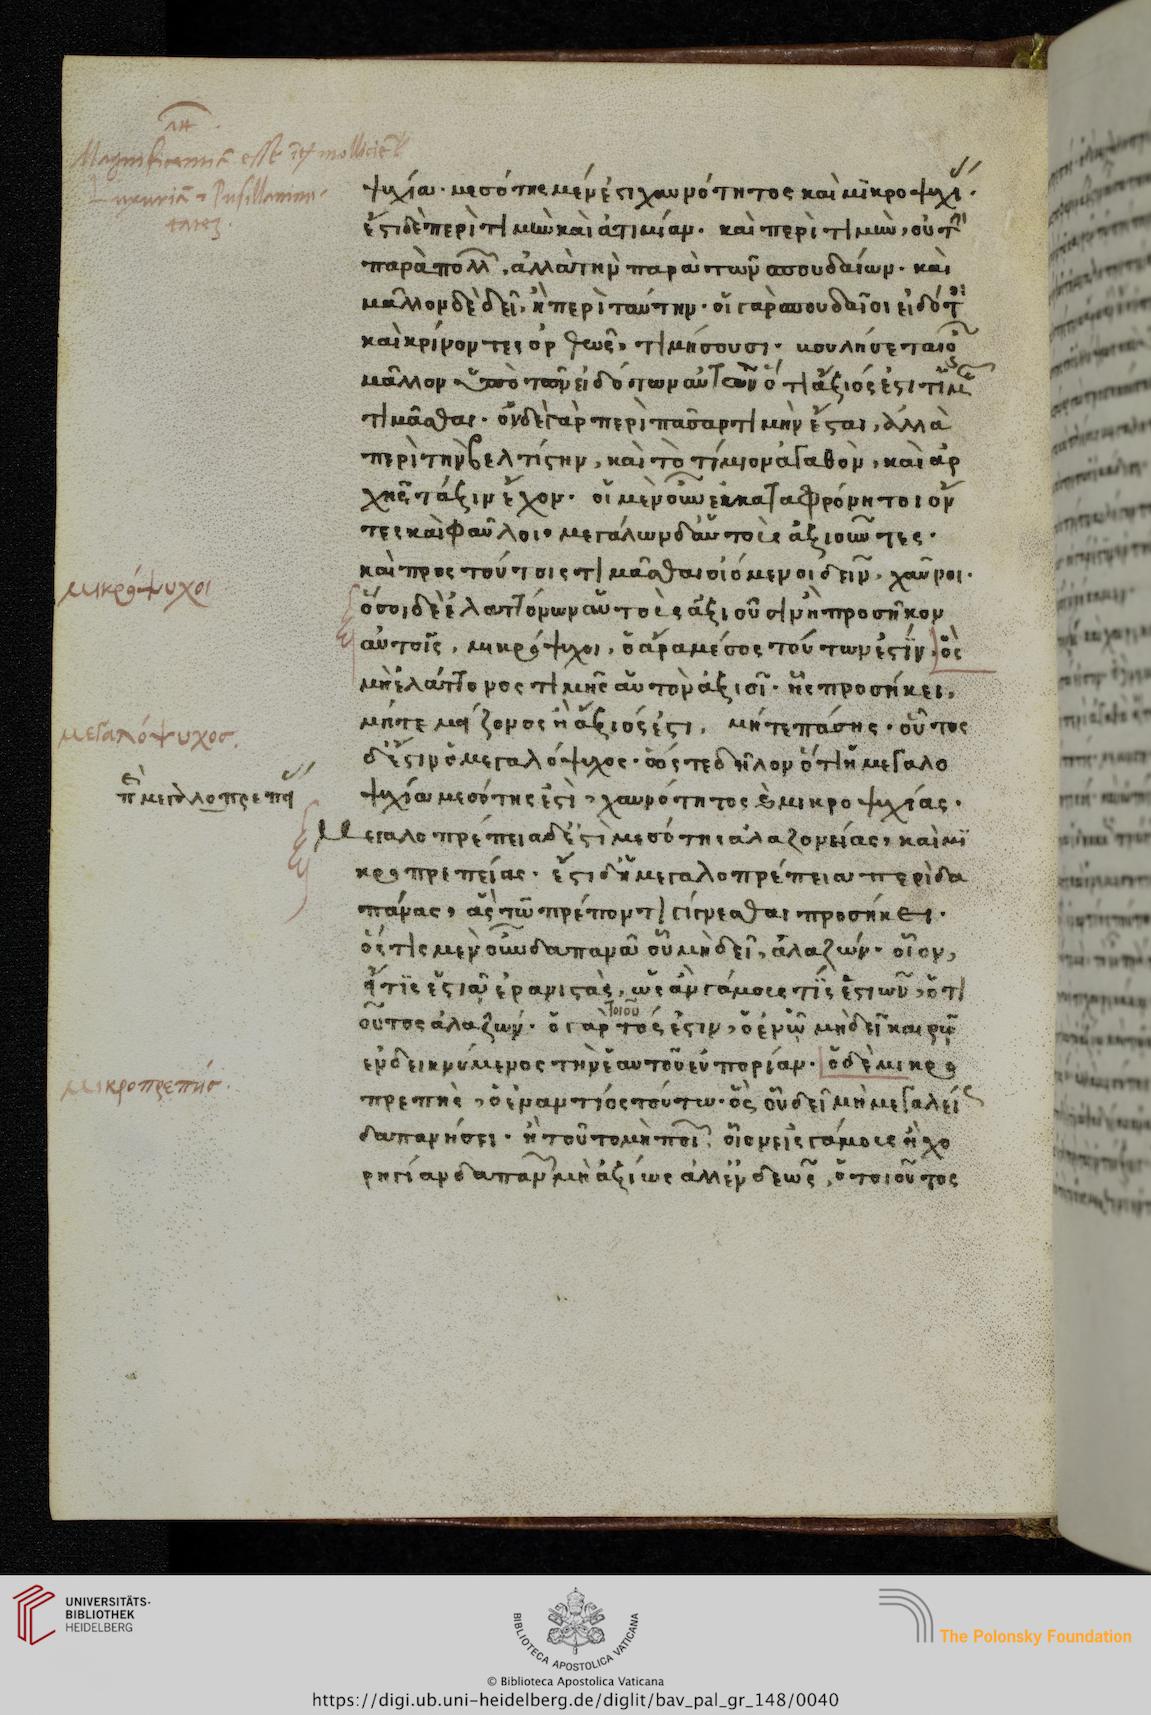 ψυχία. μεσότης μέν ἐστι χαυνότητος καὶ μικροψυχί
ἔστι δὲ περὶ τιμὴν καὶ ἀτιμίαν. καὶ περὶ τιμὴν, οὐ τὴν
παρὰ πολλ, ἀλλὰ τὴν παρὰ τῶν σπουδαίων. καὶ
μᾶλλον δὲ δεῖ, ἢ περὶ ταύτην. οἱ γὰρ σπουδαῖοι εἰδότ
καὶ κρίνοντες ὀρθῶς, τιμήσουσι. βουλήσεται οὖν
μᾶλλον ὑπὸ τῶν εἰδότων αὐτῶν ὅτι ἄξιός ἐστι τιμῆς
τιμᾶσθαι. οὐδὲ γὰρ περὶ πᾶσαν τιμὴν ἔσται, ἀλλὰ
περὶ τὴν βελτίστην, καὶ τὸ τίμιον ἀγαθὸν, καὶ ἀρ
χῆς τάξιν ἔχον. οἱ μὲν οὖν εὐκαταφρόνητοι ὄν
τες καὶ φαῦλοι, μεγάλων δ' αὑτοὺς ἀξιοῦντες.
καὶ προς τούτοις τιμᾶσθαι οἰόμενοι δεῖν, χαῦνοι.
ὅσοι δὲ ἐλαττόνων αὑτοὺς ἀξιοῦσιν ἢ προσῆκον
αὐτοῖς, μικρόψυχοι, ὁ ἄρα μέσος τούτων ἐστίν, ὃς
μὴ ἐλάττονος τιμῆς αὑτὸν ἀξιοῖ. ἧς προσήκει,
μήτε μείζονος ἢ ἄξιός ἐστι, μήτε πάσης. οὗτος
δ' ἐστὶν ὁ μεγαλόψυχος. ὥστε δῆλον ὅτι ἡ μεγαλο
ψυχία μεσότης ἐστὶ, χαυνότητος καὶ μικροψυχίας.
Μεγαλοπρέπεια δ' ἐστὶ μεσότης ἀλαζονείας, καὶ μι
κροπρεπείας. ἔστι δ' ἡ μεγαλοπρέπεια περὶ δα
πάνας, ἃς τῶ πρέποντι γίγνεσθαι προσήκει.
ὅστις μὲν οὖν δαπανᾶ οὗ μὴ δεῖ, ἀλαζών. οἷον,
εἴ τις ἑστιᾷ ἐρανιστὰς, ὡς ἂν γάμους τις ἑστιῶν, ὅτι
οὗτος ἀλαζών. ὁ γὰρ τοιοῦτός ἐστιν, ὁ ἐν ᾧ μὴ δεῖ καιρῷ
ἐνδεικνύμενος τὴν ἑαυτοῦ εὐπορίαν. ὁ δὲ μικρο
πρεπὴς, ὁ ἐναντίος τούτω. ὃς οὗ δεῖ μὴ μεγαλείως
δαπανήσει. ἢ τοῦτο μὴ ποι, οἷον εἰς γάμους ἢ χο
ρηγίαν δαπανῶν μὴ ἀξίως ἀλλ' ἐνδεῶς, ὁ τοιοῦτος
μικρόψυχοι
μεγαλόψυχος.
περὶ μεγαλοπρεπεί
μικροπρεπής.
UNIVERSITÄTS-
BIBLIOTHEK
HEIDELBERG
BIBLIOTECA APOSTOLICA VATICANA
The Polonsky Foundation
© Biblioteca Apostolica Vaticana
https://digi.ub.uni-heidelberg.de/diglit/bav_pal_gr_148/0040